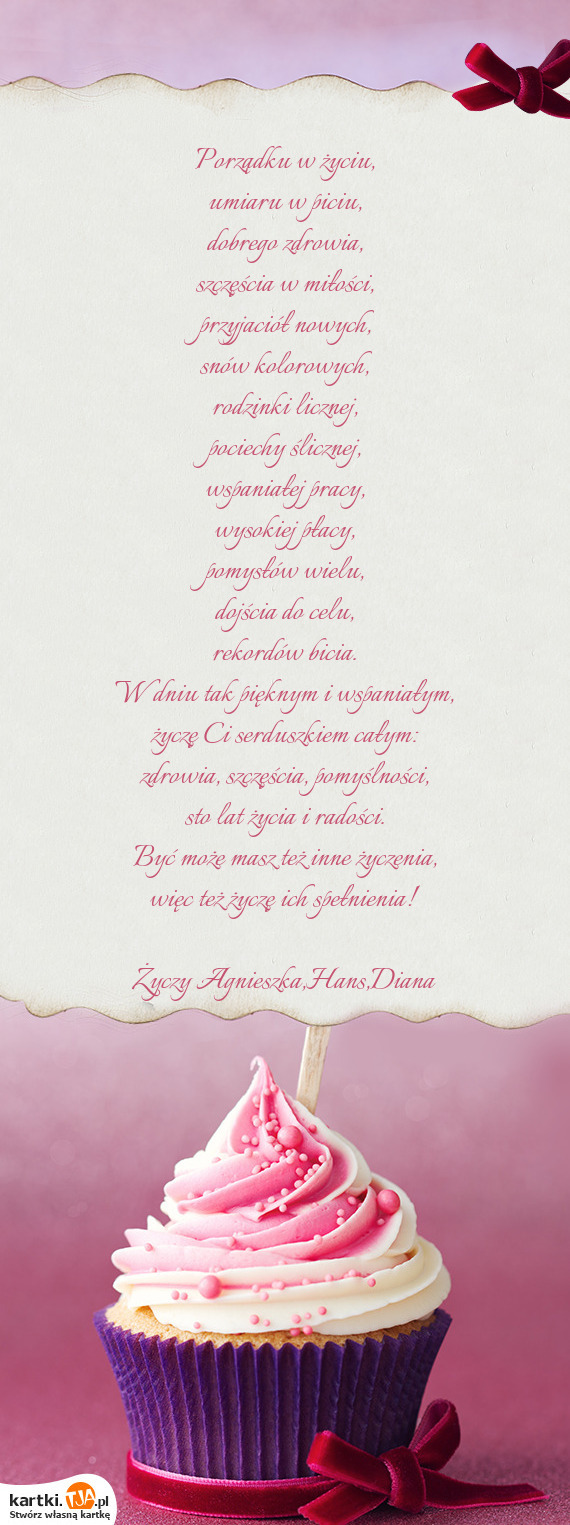 Porządku w życiu,
umiaru w piciu,
dobrego zdrowia,
szczęścia w miłości,
przyjaciół nowych,
snów kolorowych,
rodzinki licznej,
pociechy ślicznej,
wspaniałej pracy,
wysokiej płacy,
pomysłów wielu,
dojścia do celu,
rekordów bicia.
W dniu tak pięknym i wspaniałym,
życzę Ci serduszkiem całym:
zdrowia, szczęścia, pomyślności,
sto lat życia i radości.
Być może masz też inne życzenia,
więc też życzę ich spełnienia!
Życzy Agnieszka,Hans,Diana
kartki.TJA.pl
Stwórz własną kartkę